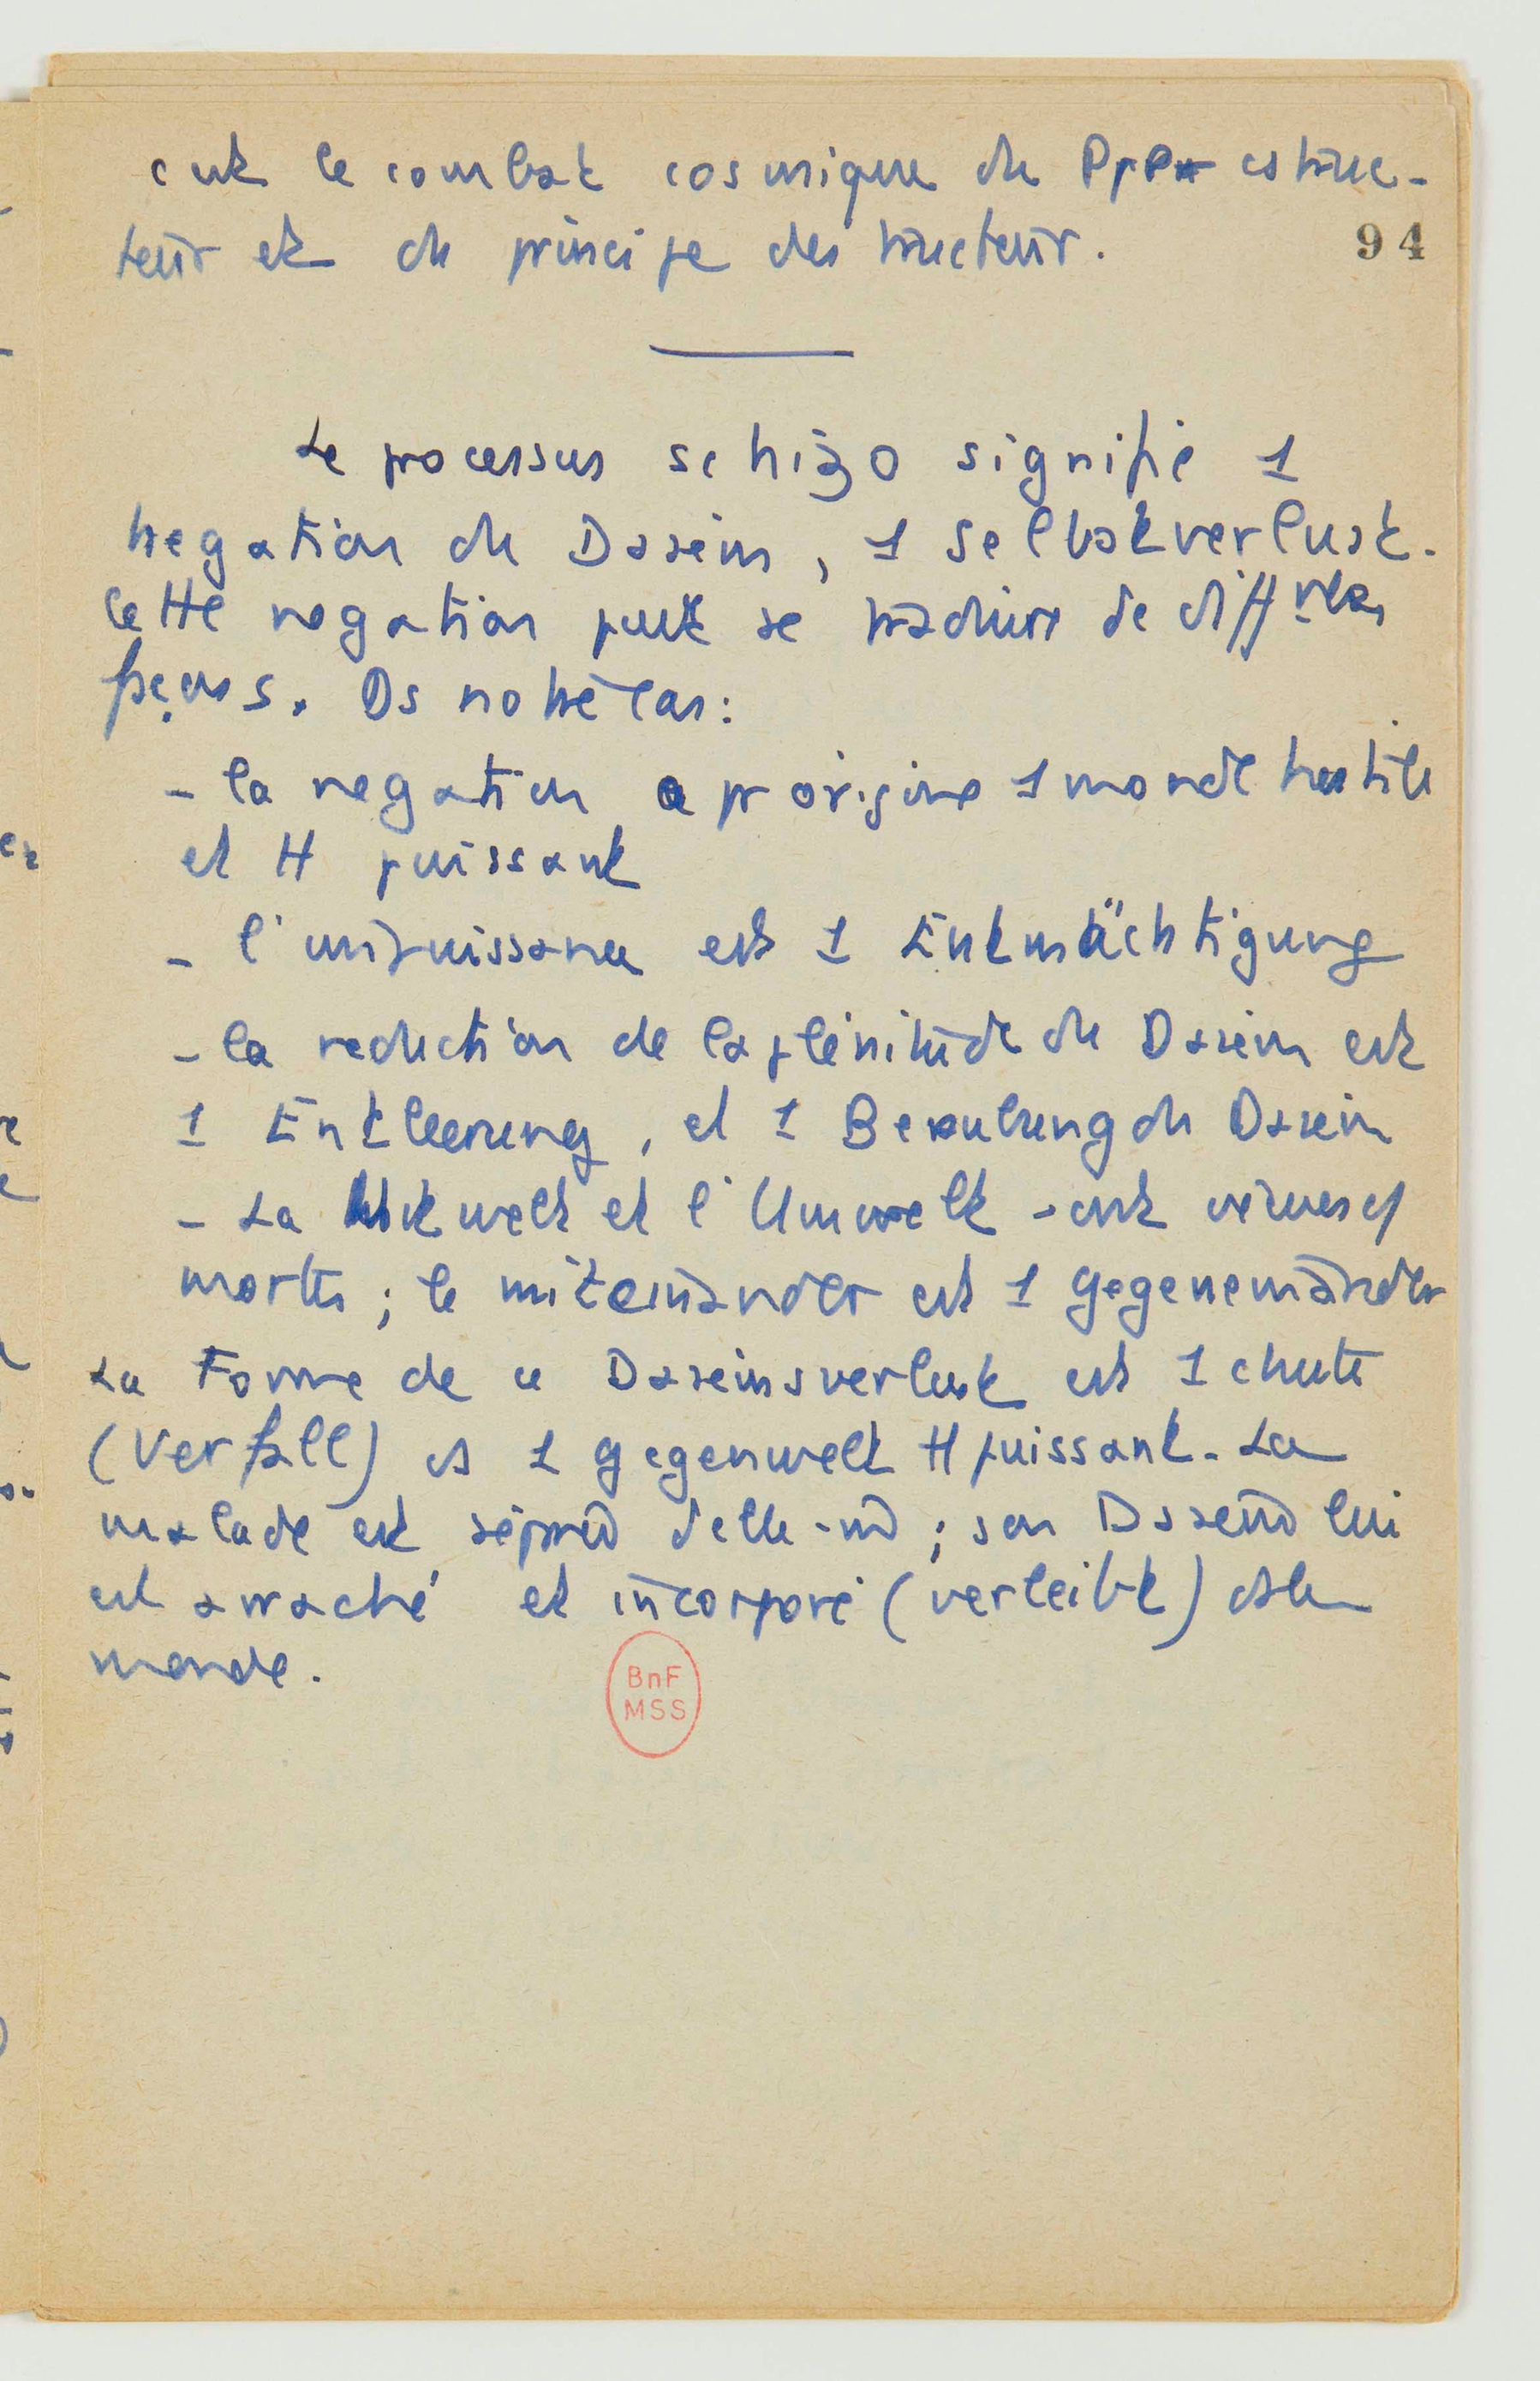 c'est le combat cosmique du Ppe construc-
teur et du principe destructeur.
94
Le processus schizo signifie 1
negation du Dasein, 1 Selbstverlust.
Cette negation peut se traduire de diff.
façons. Ds notre cas:
- la negation a pr origine 1 monde hostile
et tt puissant
- l'impuissance est 1 Entmächtigung
- la reduction de la plénitude du Dasein est
1 Entleerung, et 1 Beraubung du Dasein
- La Mitwelt et l'Umwelt sont
mortes ; le miteinander est 1 gegeneinander
La Forme de ce Daseinsverlust est 1 chute
(Verfall) ds 1 gegenwelt tt puissant. La
malade est séparée d'elle-m ; son Dasein lui
est arraché et incorporé (verleibt) ds le
monde.
BnF
MSS